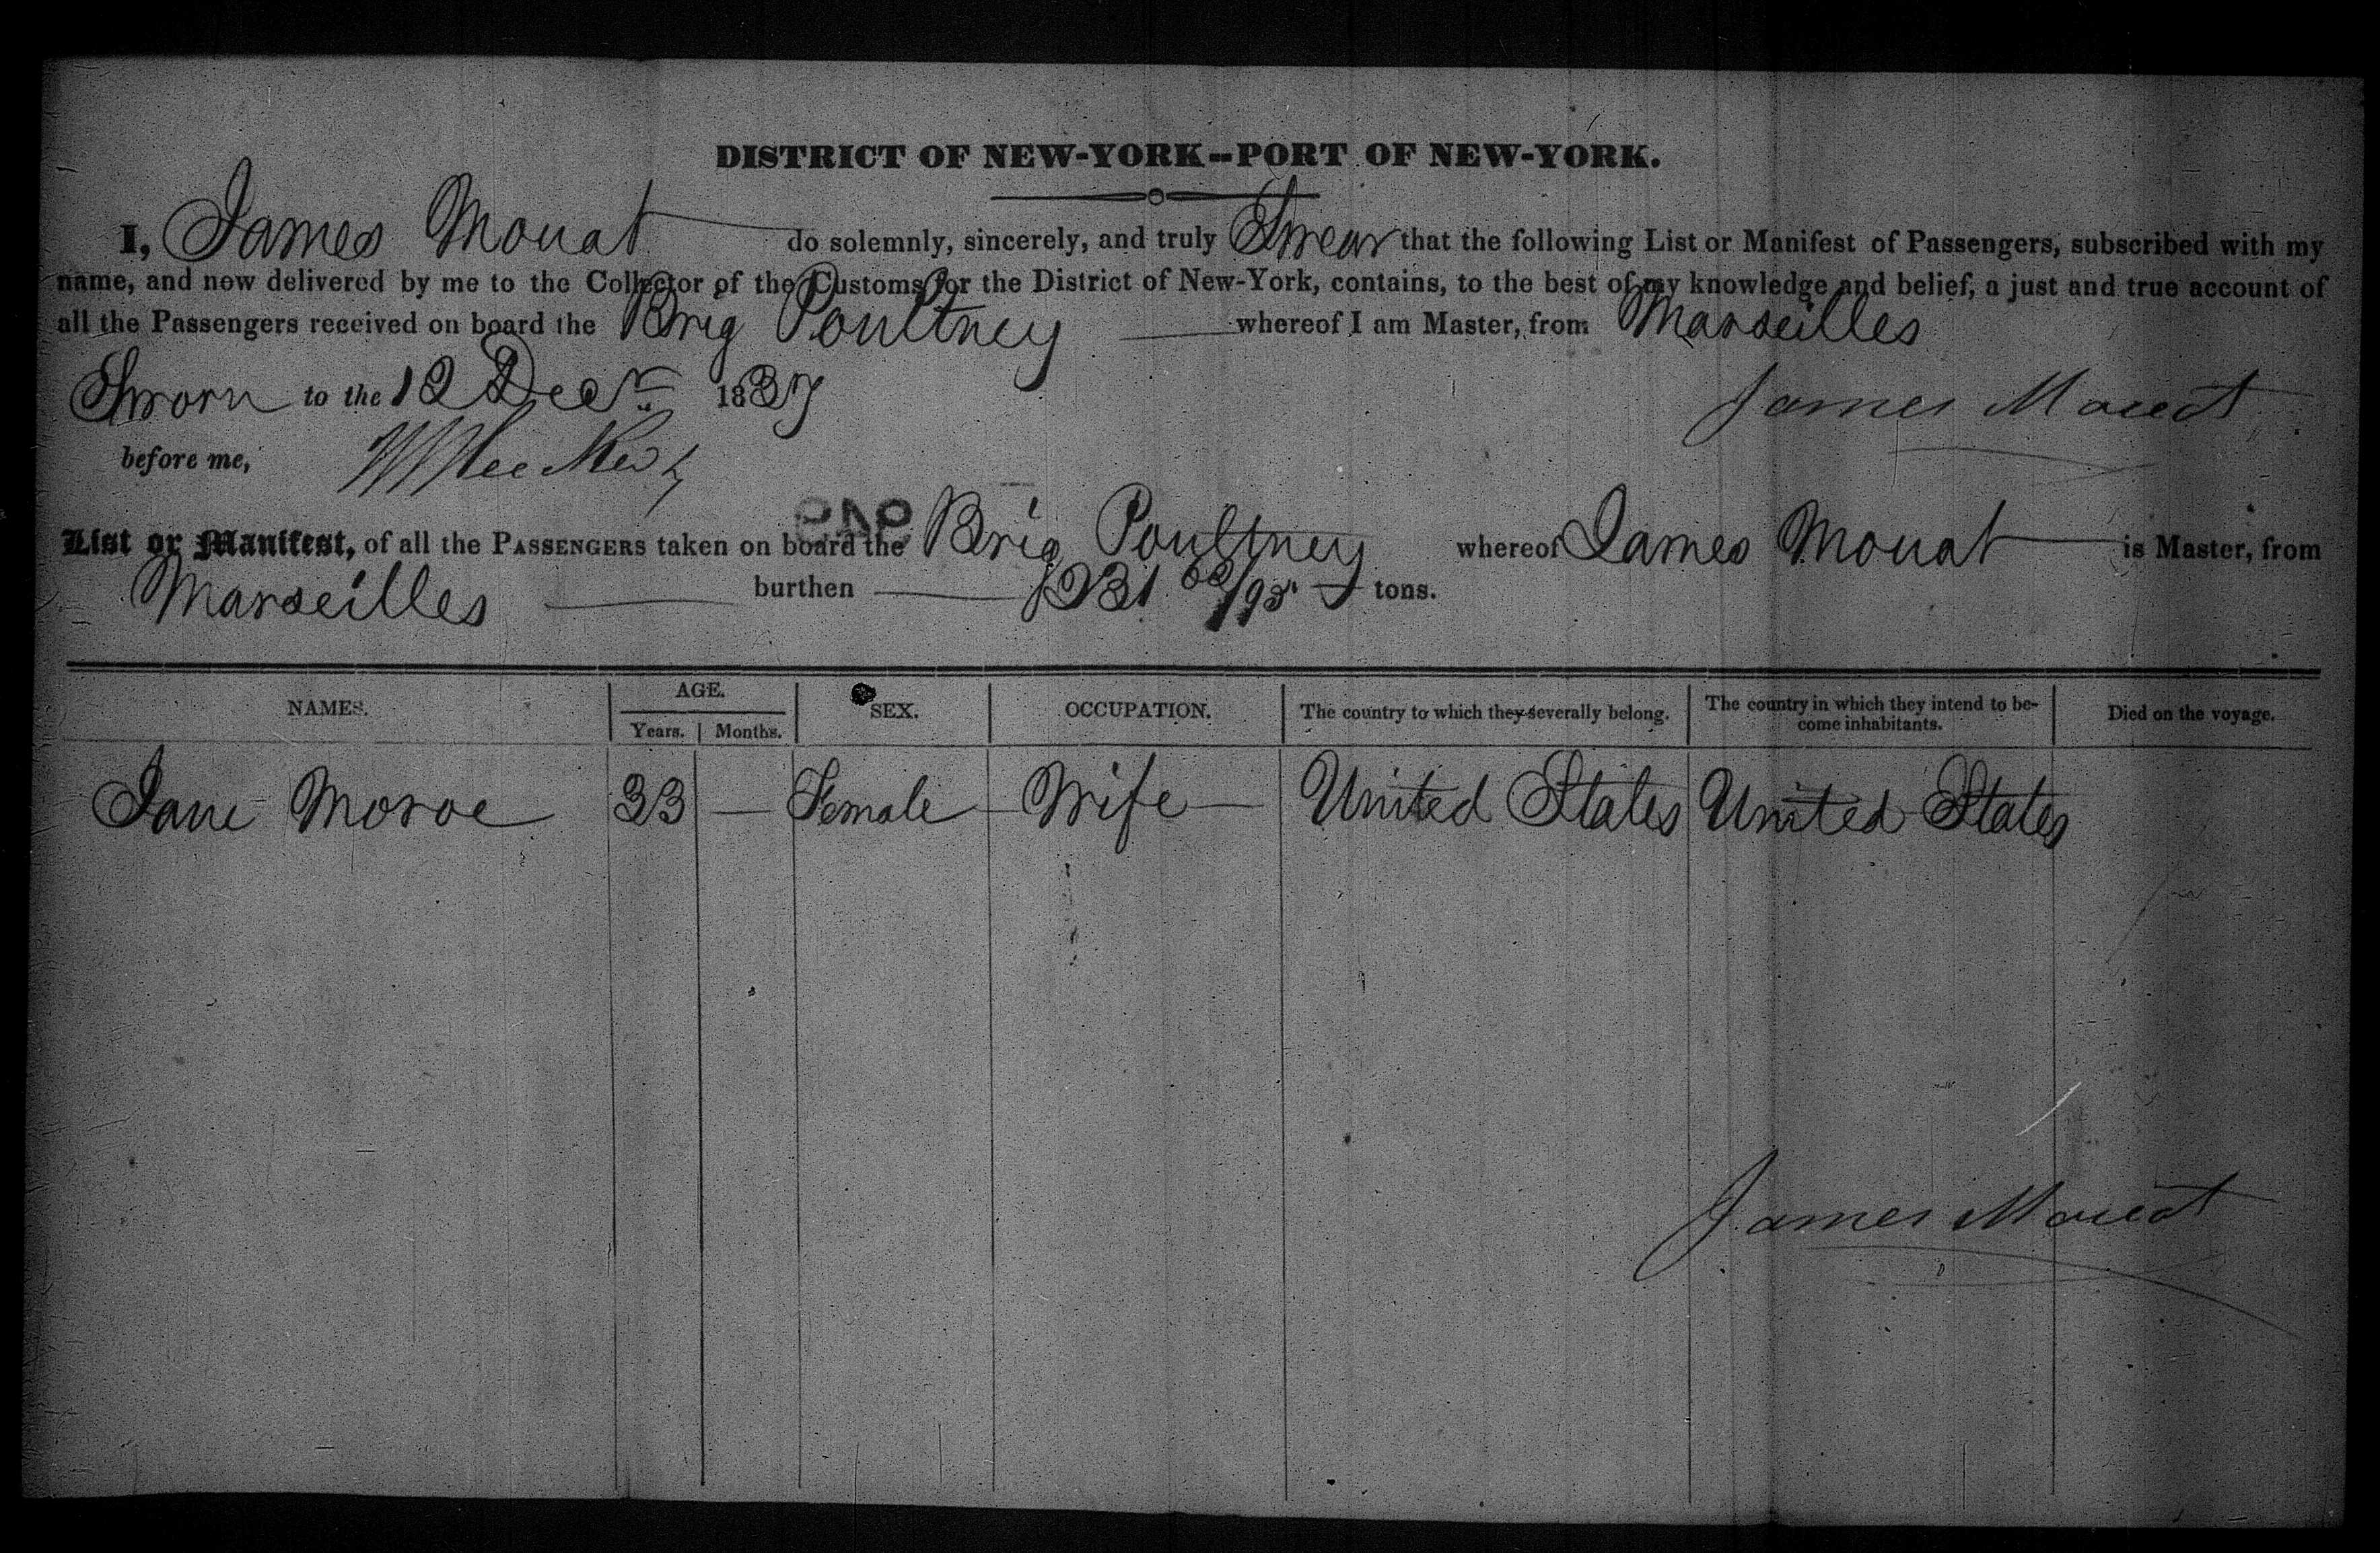 DISTRICT OF NEW-YORK--PORT OF NEW-YORK.
I, James Mouat do solemnly, sincerely, and truly Swear that the following List or Manifest of Passengers, subscribed with my
name, and now delivered by me to the Collector of the Customs for the District of New-York, contains, to the best of my knowledge and belief, a just and true account of
all the Passengers received on board the Brig Poultney whereof I am Master, from Marseilles
Sworn to the 12 Decr 1837 James Mouat
before me,
List or Manifest, of all the PASSENGERS taken on board the Brig Poultney whereof James Mouat is Master, from
Marseilles burthen 231 /95 tons.
NAMES. AGE. Years. Months. SEX. OCCUPATION. The country to which they severally belong. The country in which they intend to be-come inhabitants. Died on the voyage.
Jane 33 — Female Wife United States United States
James Mouat